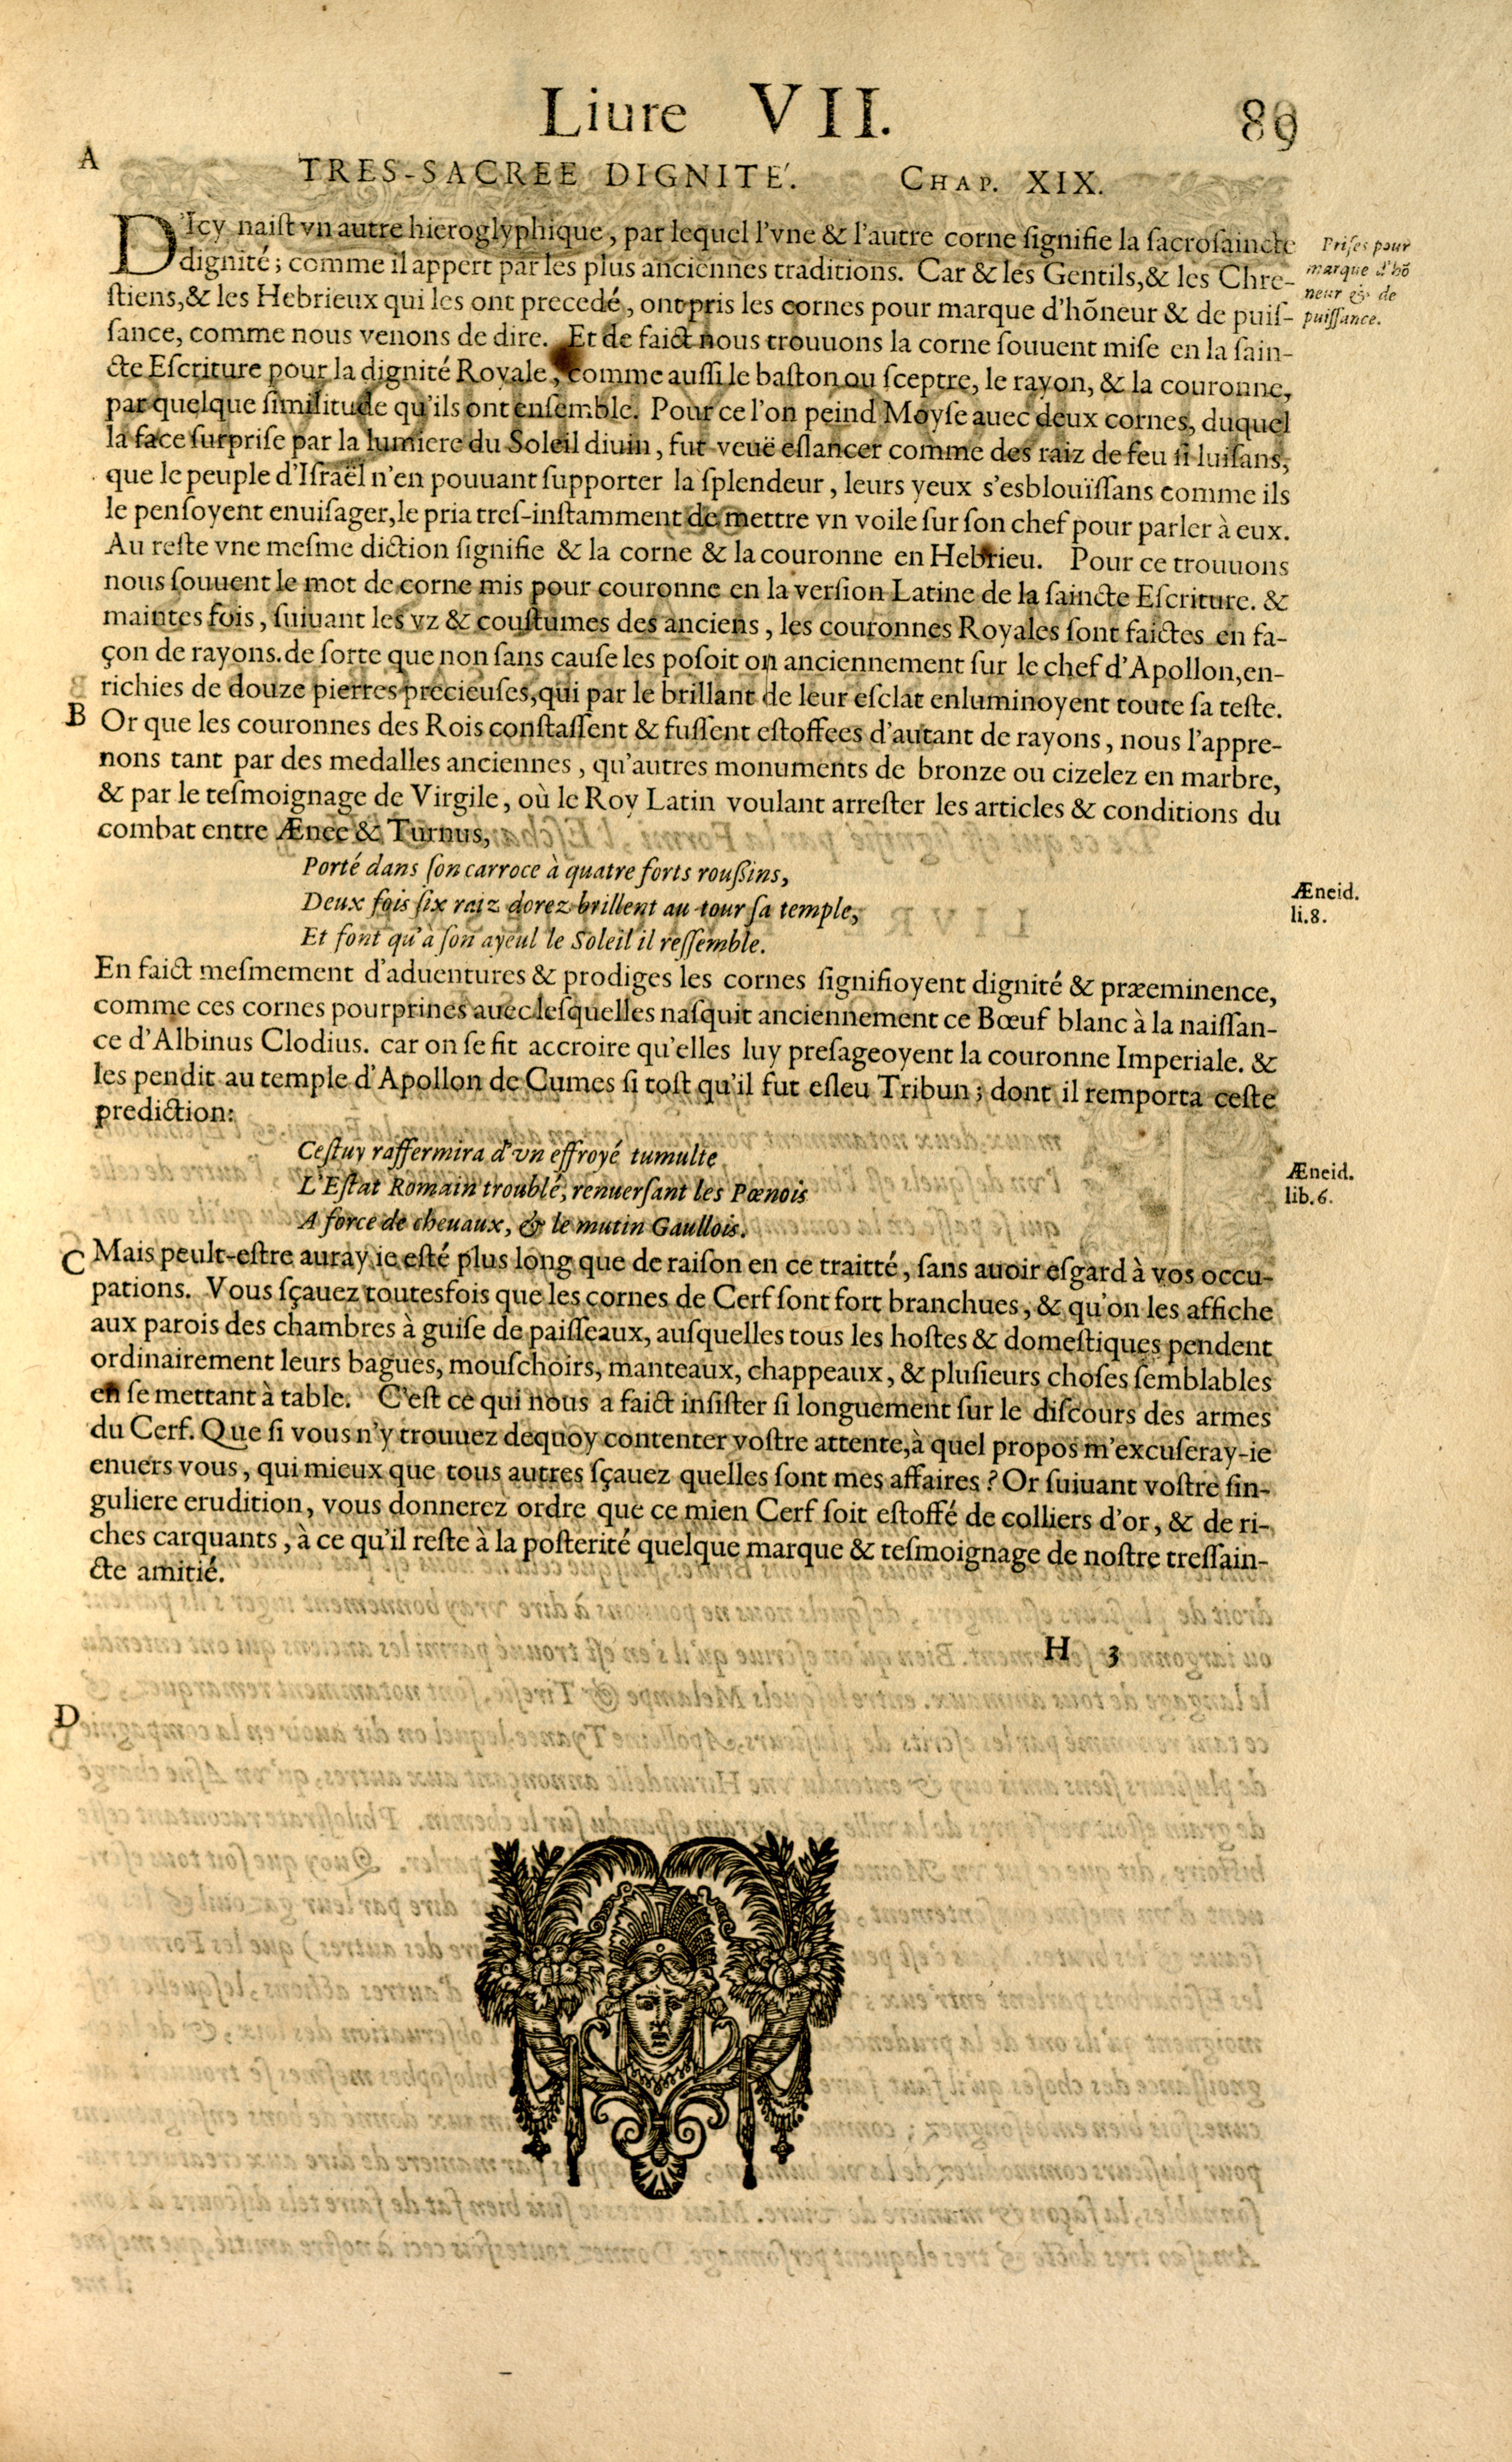 Liure VII. 89
A
TRES-SACREE DIGNITE'. CHAP. XIX.
D'Icy naist vn autre hieroglyphique, par lequel l'vne & l'autre corne signifie la sacrosaincte
dignité; comme il appert par les plus anciennes traditions. Car & les Gentils, & les Chre-
stiens, & les Hebrieux qui les ont precedé, ont pris les cornes pour marque d'hõneur & de puis-
sance, comme nous venons de dire. Et de faict nous trouuons la corne souuent mise en la sain-
cte Escriture pour la dignité Royale, comme aussi le baston ou sceptre, le rayon, & la couronne,
par quelque similitude qu'ils ont ensemble. Pour ce l'on peind Moyse auec deux cornes, duquel
la face surprise par la lumiere du Soleil diuin, fut veuë eslancer comme des raiz de feu si luisans,
que le peuple d'Israël n'en pouuant supporter la splendeur, leurs yeux s'esblouïssans comme ils
le pensoyent enuisager, le pria tres-instamment de mettre vn voile sur son chef pour parler à eux.
Au reste vne mesme diction signifie & la corne & la couronne en Hebrieu. Pour ce trouuons
nous souuent le mot de corne mis pour couronne en la version Latine de la saincte Escriture. &
maintes fois, suiuant les vz & coustumes des anciens, les couronnes Royales sont faictes en fa-
çon de rayons. de sorte que non sans cause les posoit on anciennement sur le chef d'Apollon, en-
richies de douze pierres precieuses, qui par le brillant de leur esclat enluminoyent toute sa teste.
B Or que les couronnes des Rois constassent & fussent estoffees d'autant de rayons, nous l'appre-
nons tant par des medalles anciennes, qu'autres monuments de bronze ou cizelez en marbre,
& par le tesmoignage de Virgile, où le Roy Latin voulant arrester les articles & conditions du
combat entre Ænee & Turnus,
Porté dans son carroce à quatre forts roussins,
Deux fois six raiz dorez brillent au tour sa temple,
Et font qu'à son ayeul le Soleil il ressemble.
En faict mesmement d'aduentures & prodiges les cornes signifioyent dignité & præeminence,
comme ces cornes pourprines auec lesquelles nasquit anciennement ce Bœuf blanc à la naissan-
ce d'Albinus Clodius. car on se fit accroire qu'elles luy presageoyent la couronne Imperiale. &
les pendit au temple d'Apollon de Cumes si tost qu'il fut esleu Tribun; dont il remporta ceste
prediction:
Cestuy raffermira d'vn effroyé tumulte
L'Estat Romain troublé, renuersant les Pœnois
A force de cheuaux, & le mutin Gaullois.
C Mais peult-estre auray ie esté plus long que de raison en ce traitté, sans auoir esgard à vos occu-
pations. Vous sçauez toutesfois que les cornes de Cerf sont fort branchues, & qu'on les affiche
aux parois des chambres à guise de paisseaux, ausquelles tous les hostes & domestiques pendent
ordinairement leurs bagues, mouschoirs, manteaux, chappeaux, & plusieurs choses semblables
en se mettant à table. C'est ce qui nous a faict insister si longuement sur le discours des armes
du Cerf. Que si vous n'y trouuez dequoy contenter vostre attente, à quel propos m'excuseray-ie
enuers vous, qui mieux que tous autres sçauez quelles sont mes affaires? Or suiuant vostre sin-
guliere erudition, vous donnerez ordre que ce mien Cerf soit estoffé de colliers d'or, & de ri-
ches carquants, à ce qu'il reste à la posterité quelque marque & tesmoignage de nostre tressain-
cte amitié.
H 3
D
Prises pour
marque d'hõ
neur & de
puissance.
Æneid.
li.8.
Æneid.
lib.6.